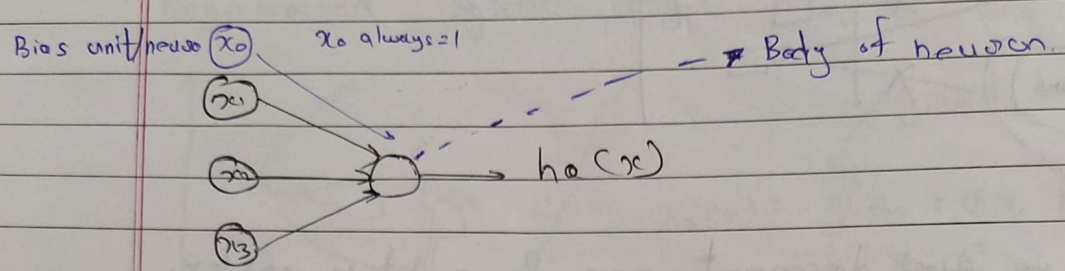 Bias unit/neuro x₀ x₀ always=1
Body of neuron.
x₁
x₂ hθ(x)
x₃